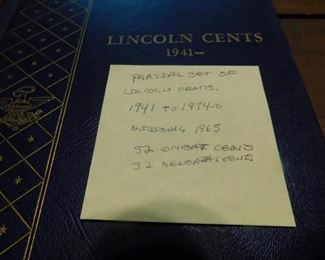 LINCOLN CENTS
1941—
PARTIAL SET OF
LINCOLN CENTS.
1941 TO 1974-D
MISSING 1965
52 WHEAT CENTS
32 MEMORIAL CENTS